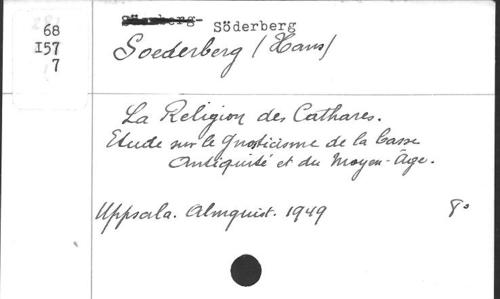 Söderberg
68
I57
7
Soederberg (Hans)
La Religion des Cathares.
Etude sur le gnosticisme de la basse
Antiquité et du Moyen-Âge.
Uppsala. Almquist. 1949 8°